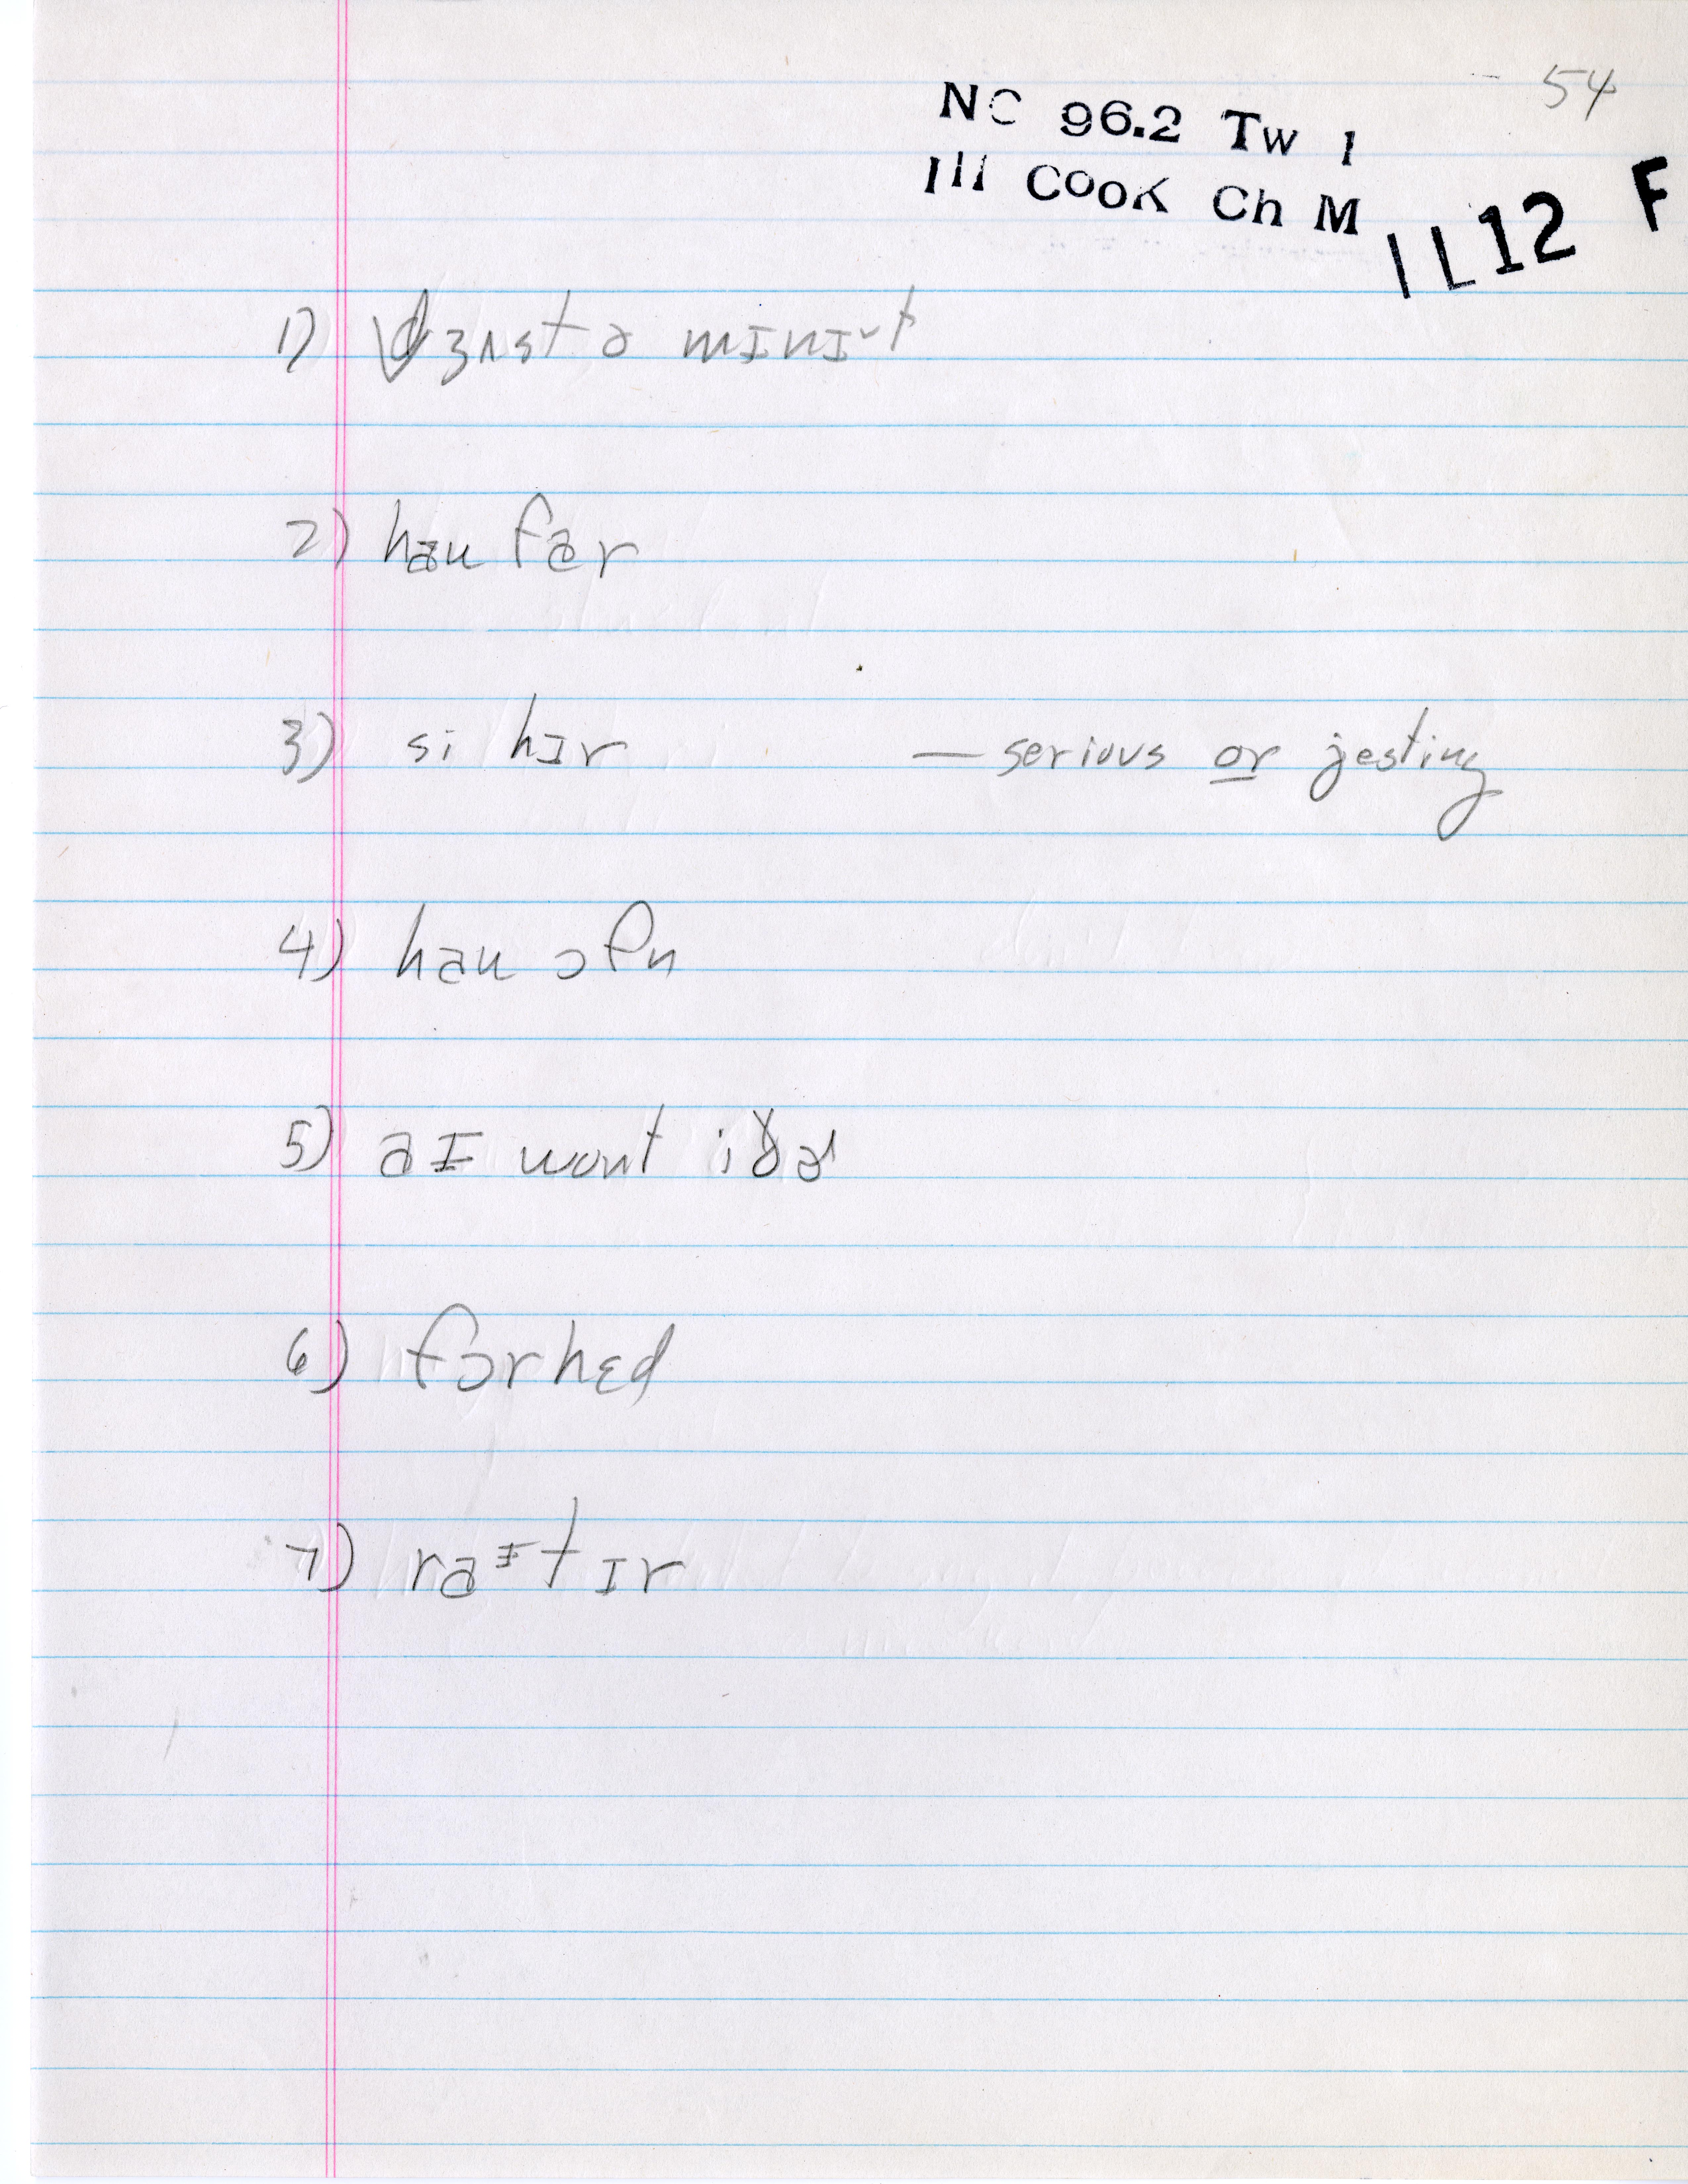 54
NC 96.2 Tw 1
Ill Cook Ch M
IL12 F
1) dʒʌst ə mɪnɪt
2) hau far
3) si hɪr — serious or jesting
4) hau ɔfn
5) aɪ wont iðɚ
6) fɔrhɛd
7) raɪt ɪr